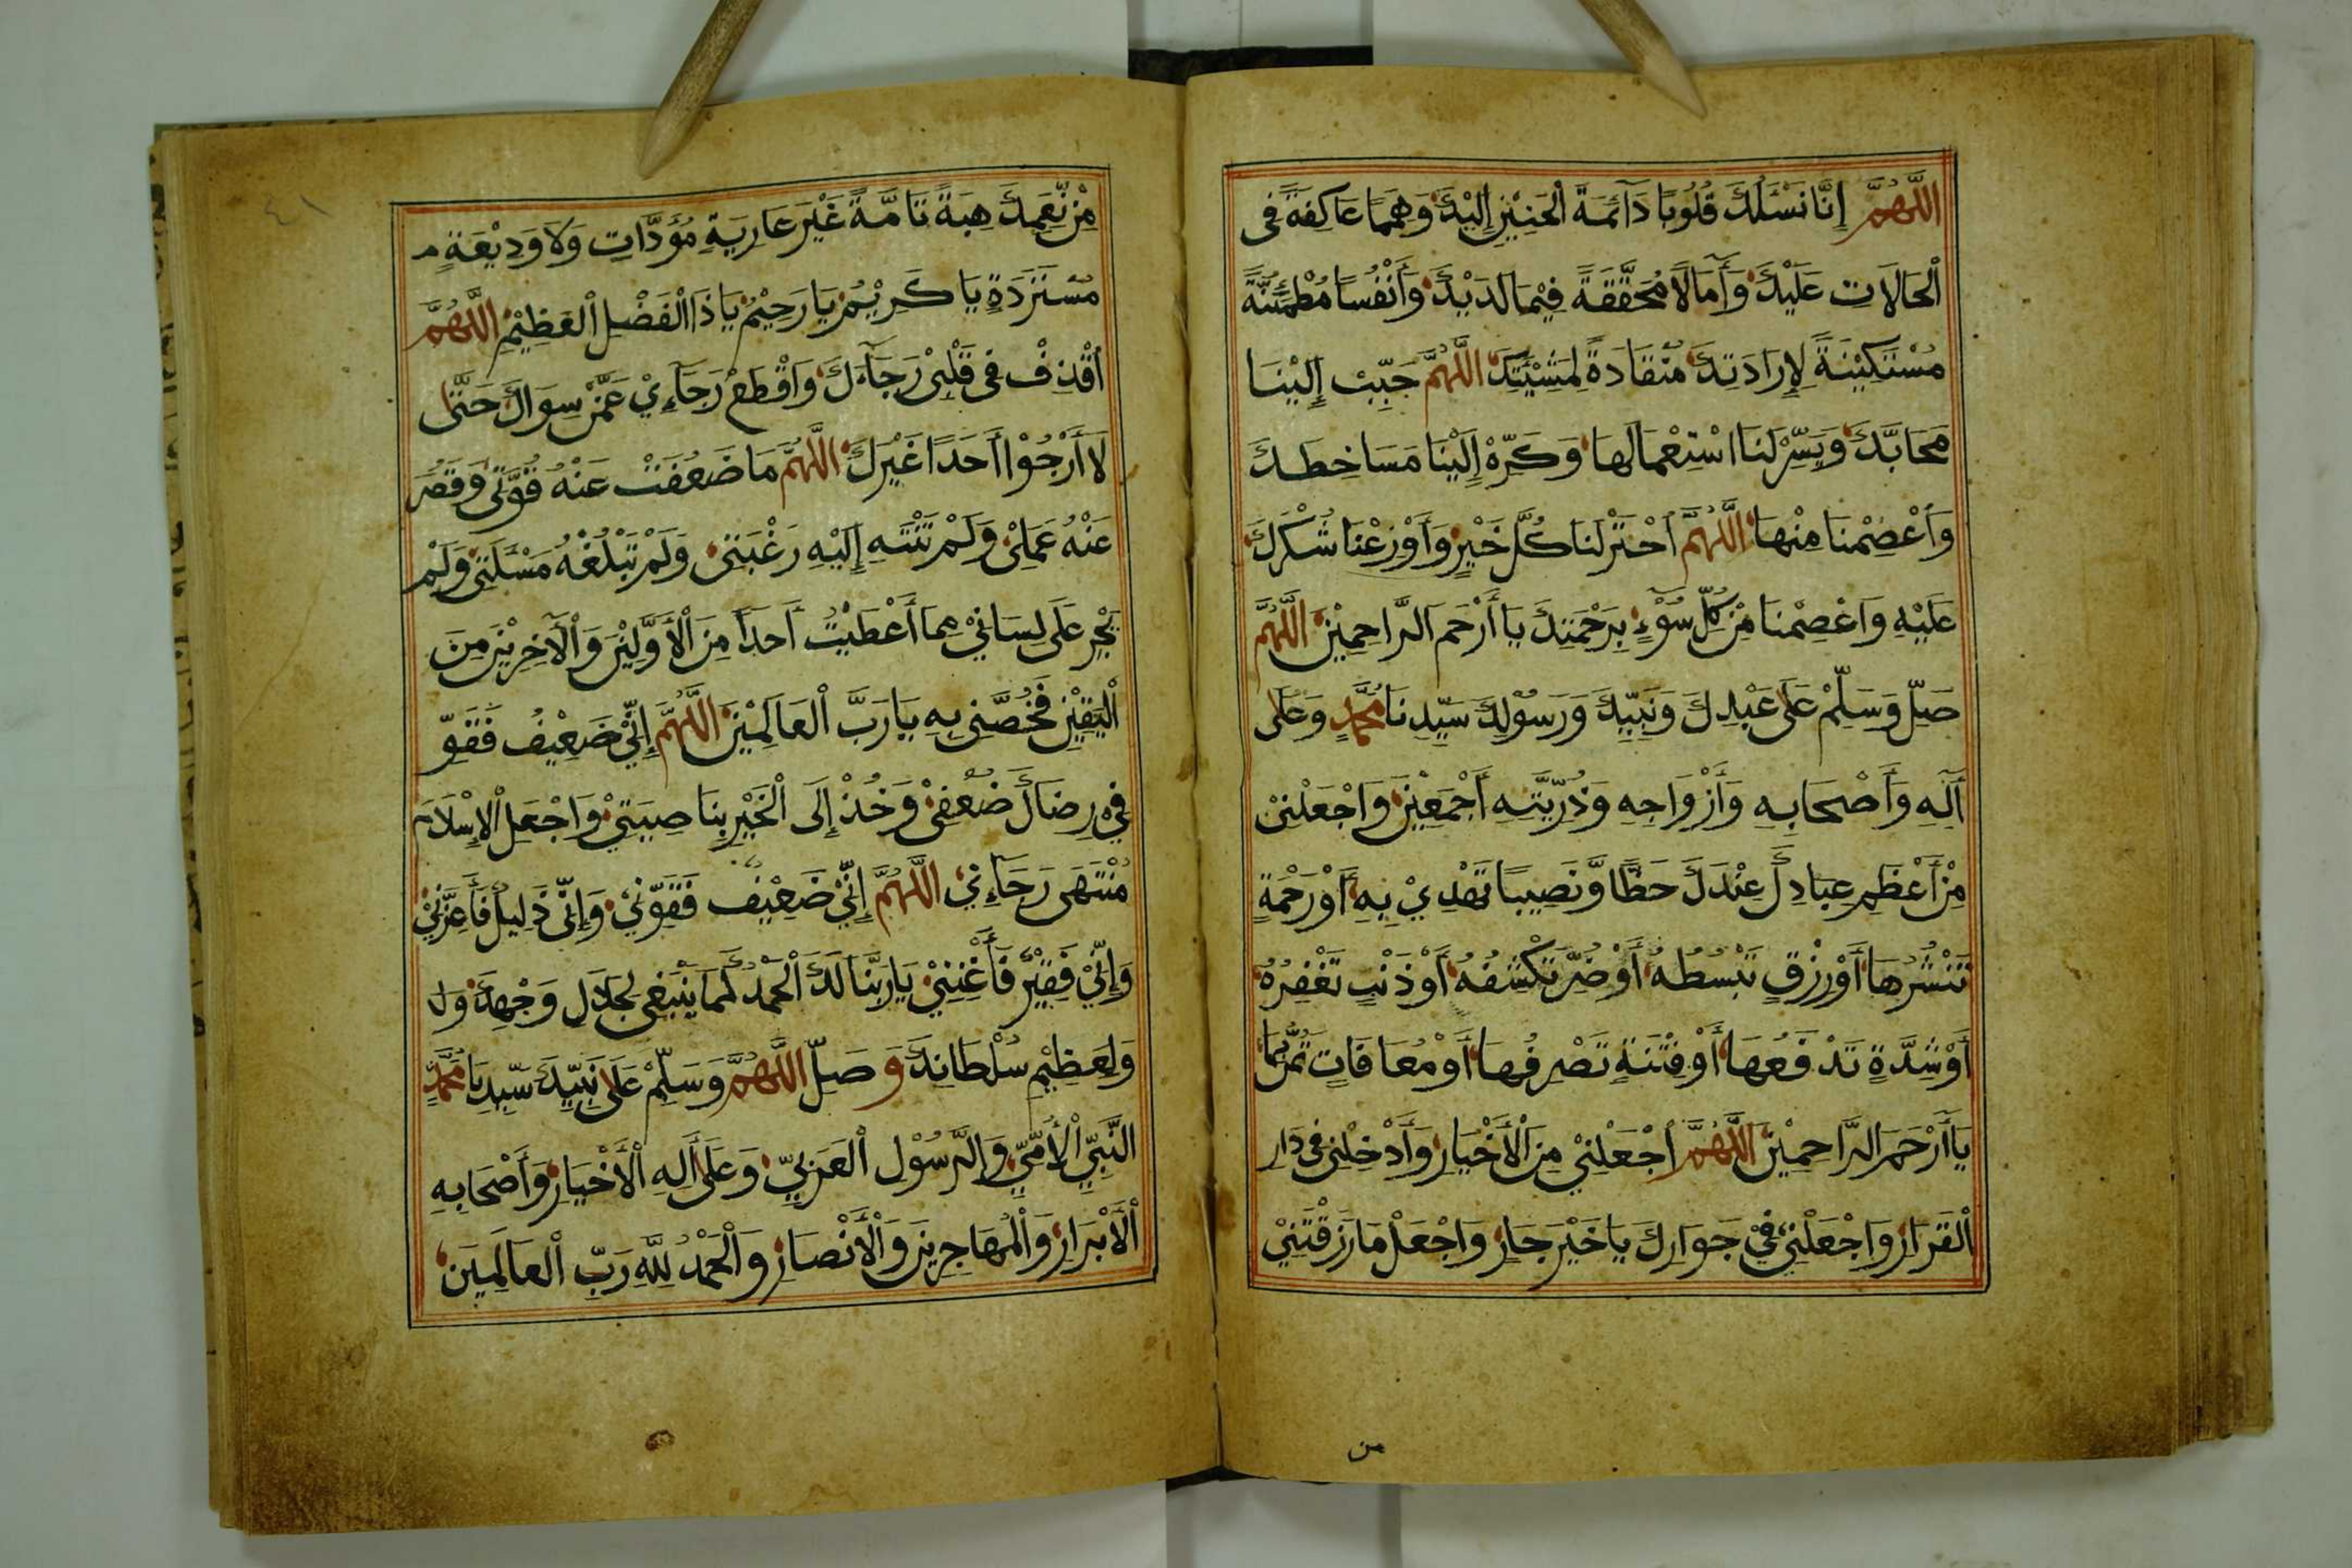 اَللّٰهُمَّ إِنَّا نَسْئَلُكَ قُلُوبًا دَآئِمَةَ الْحَنِيْنِ إِلَيْكَ وَهِمَمًا عَاكِفَةً فِى
الْحَالَاتِ عَلَيْكَ وَأَمَالًا مُحَقَّقَةً فِيْمَا لَدَيْكَ وَأَنْفُسًا مُطْمَئِنَّةً
مُسْتَكِيْنَةً لِإِرَادَتِكَ مُنْقَادَةً لِمَشِيْئَتِكَ اَللّٰهُمَّ حَبِّبْ إِلَيْنَا
مَحَابَّكَ وَيَسِّرْ لَنَا اسْتِعْمَالَهَا وَكَرِّهْ إِلَيْنَا مَسَاخِطَكَ
وَأَعْصِمْنَا مِنْهَا اَللّٰهُمَّ اخْتَرْ لَنَا كُلَّ خَيْرٍ وَأَوْزِعْنَا شُكْرَكَ
عَلَيْهِ وَاعْصِمْنَا مِنْ كُلِّ سُوْءٍ بِرَحْمَتِكَ يَا أَرْحَمَ الرَّاحِمِيْنَ اَللّٰهُمَّ
صَلِّ وَسَلِّمْ عَلَى عَبْدِكَ وَنَبِيِّكَ وَرَسُوْلِكَ سَيِّدِنَا مُحَمَّدٍ وَعَلَى
آلِهِ وَأَصْحَابِهِ وَأَزْوَاجِهِ وَذُرِّيَّتِهِ أَجْمَعِيْنَ وَاجْعَلْنِيْ
مِنْ أَعْظَمِ عِبَادِكَ عِنْدَكَ حَظًّا وَّنَصِيبًا تَهْدِيْ بِهِ أَوْ رَحْمَةٍ
تَنْشُرُهَا أَوْ رِزْقٍ تَبْسُطُهُ أَوْ ضُرٍّ تَكْشِفُهُ أَوْ ذَنْبٍ تَغْفِرُهُ
أَوْ شِدَّةٍ تَدْفَعُهَا أَوْ فِتْنَةٍ تَصْرِفُهَا أَوْ مُعَافَاتٍ تَمُنُّ بِهَا
يَا أَرْحَمَ الرَّاحِمِيْنَ اَللّٰهُمَّ اجْعَلْنِيْ مِنَ الْأَخْيَارِ وَأَدْخِلْنِى فِى دَارِ
الْقَرَارِ وَاجْعَلْنِيْ فِيْ جَوَارِكَ يَا خَيْرَ جَارٍ وَاجْعَلْ مَا رَزَقْتَنِيْ
من
٤١
مِنْ نِّعَمِكَ هِبَةً تَامَّةً غَيْرَ عَارِيَةٍ مُؤَدَّاتٍ وَلَا وَدِيْعَةٍ م
مُسْتَرَدَةٍ يَا كَرِيْمُ يَا رَحِيْمُ يَا ذَا الْفَضْلِ الْعَظِيْمِ اَللّٰهُمَّ
اقْذِفْ فِى قَلْبِىْ رَجَآءَكَ وَاقْطَعْ رَجَآءِيْ عَمَّنْ سِوَاكَ حَتَّى
لَا أَرْجُوْا أَحَدًا غَيْرَكَ اَللّٰهُمَّ مَا ضَعُفَتْ عَنْهُ قُوَّتِى وَقَصُرَ
عَنْهُ عَمَلِىْ وَلَمْ تَنْتَهِ إِلَيْهِ رَغْبَتِىْ وَلَمْ تَبْلُغْهُ مَسْئَلَتِىْ وَلَمْ
يَجْرِ عَلَى لِسَانِيْ مِمَا أَعْطَيْتَ أَحَدًا مِنَ الْأَوَّلِيْنَ وَالْآخِرِيْنَ مِنَ
الْيَقِيْنِ فَخُصَّنِى بِهِ يَا رَبَّ الْعَالَمِيْنَ اَللّٰهُمَّ إِنِّيْ ضَعِيْفُ فَقَوِّ
فِيْ رِضَاكَ ضَعْفِىْ وَخُذْ إِلَى الْخَيْرِ بِنَاصِيَتِيْ وَاجْعَلِ الْإِسْلَامَ
مُنْتَهَى رَجَآءِيْ اَللّٰهُمَّ إِنِّيْ ضَعِيْفُ فَقَوِّنِيْ وَإِنِّى ذَلِيلُ فَأَعِزَّنِيْ
وَإِنِّيْ فَقِيْرٌ فَأَغْنِنِيْ يَا رَبَّنَا لَكَ الْحَمْدُ كَمَا يَنْبَغِى لِجَلَالِ وَجْهِكَ وَلِ
وَلِعَظِيْمِ سُلْطَانِكَ وَصَلِّ اَللّٰهُمَّ وَسَلِّمْ عَلَى نَبِيِّكَ سَيِّدِنَا مُحَمَّدٍ
النَّبِيِّ الْأُمِّيِّ وَالرَّسُوْلِ الْعَرَبِيِّ وَعَلَى أَلِهِ الْأَخْيَارِ وَأَصْحَابِهِ
الْأَبْرَارِ وَالْمُهَاجِرِينَ وَالْأَنْصَارِ وَالْحَمْدُ لِلّٰهِ رَبِّ الْعَالَمِينَ